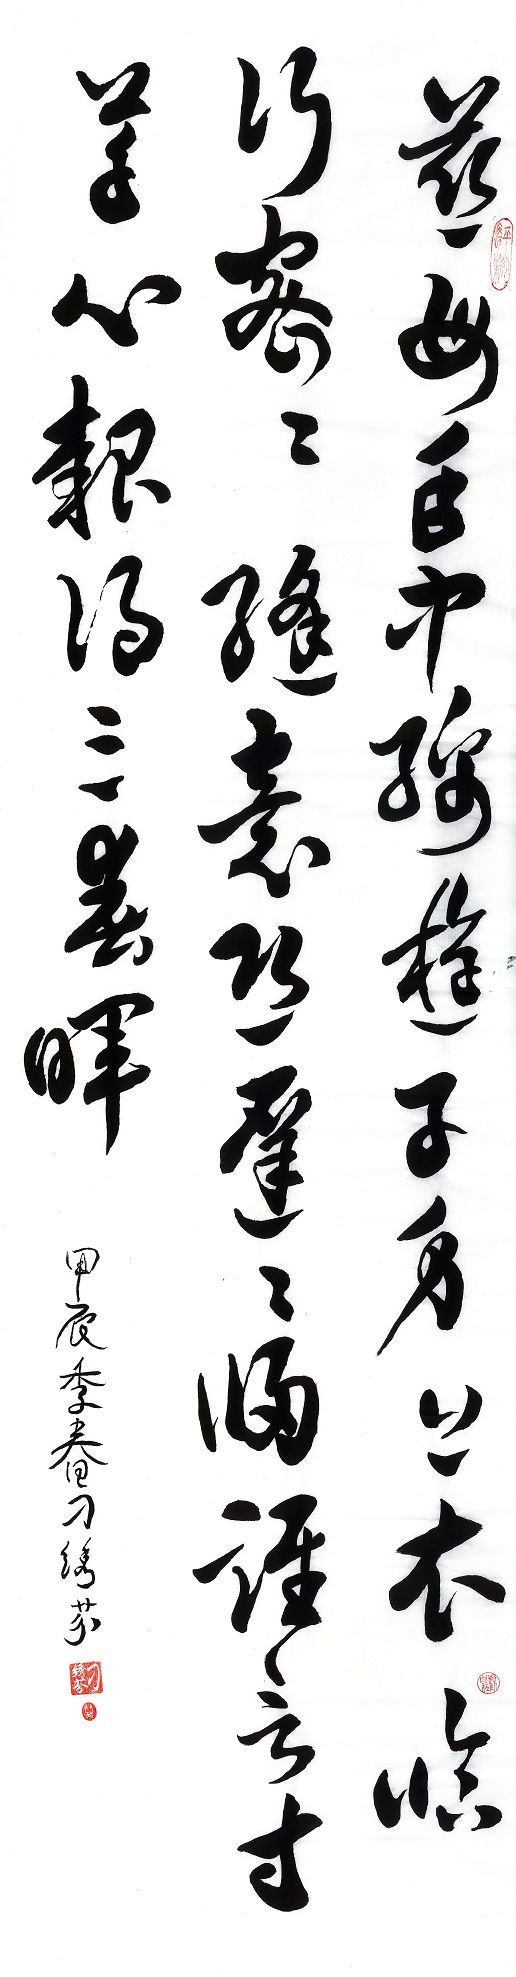 慈母手中線遊子身上衣臨
行密〻縫意恐遲〻歸誰言寸
草心報得三春暉
甲辰季春刁绣芬